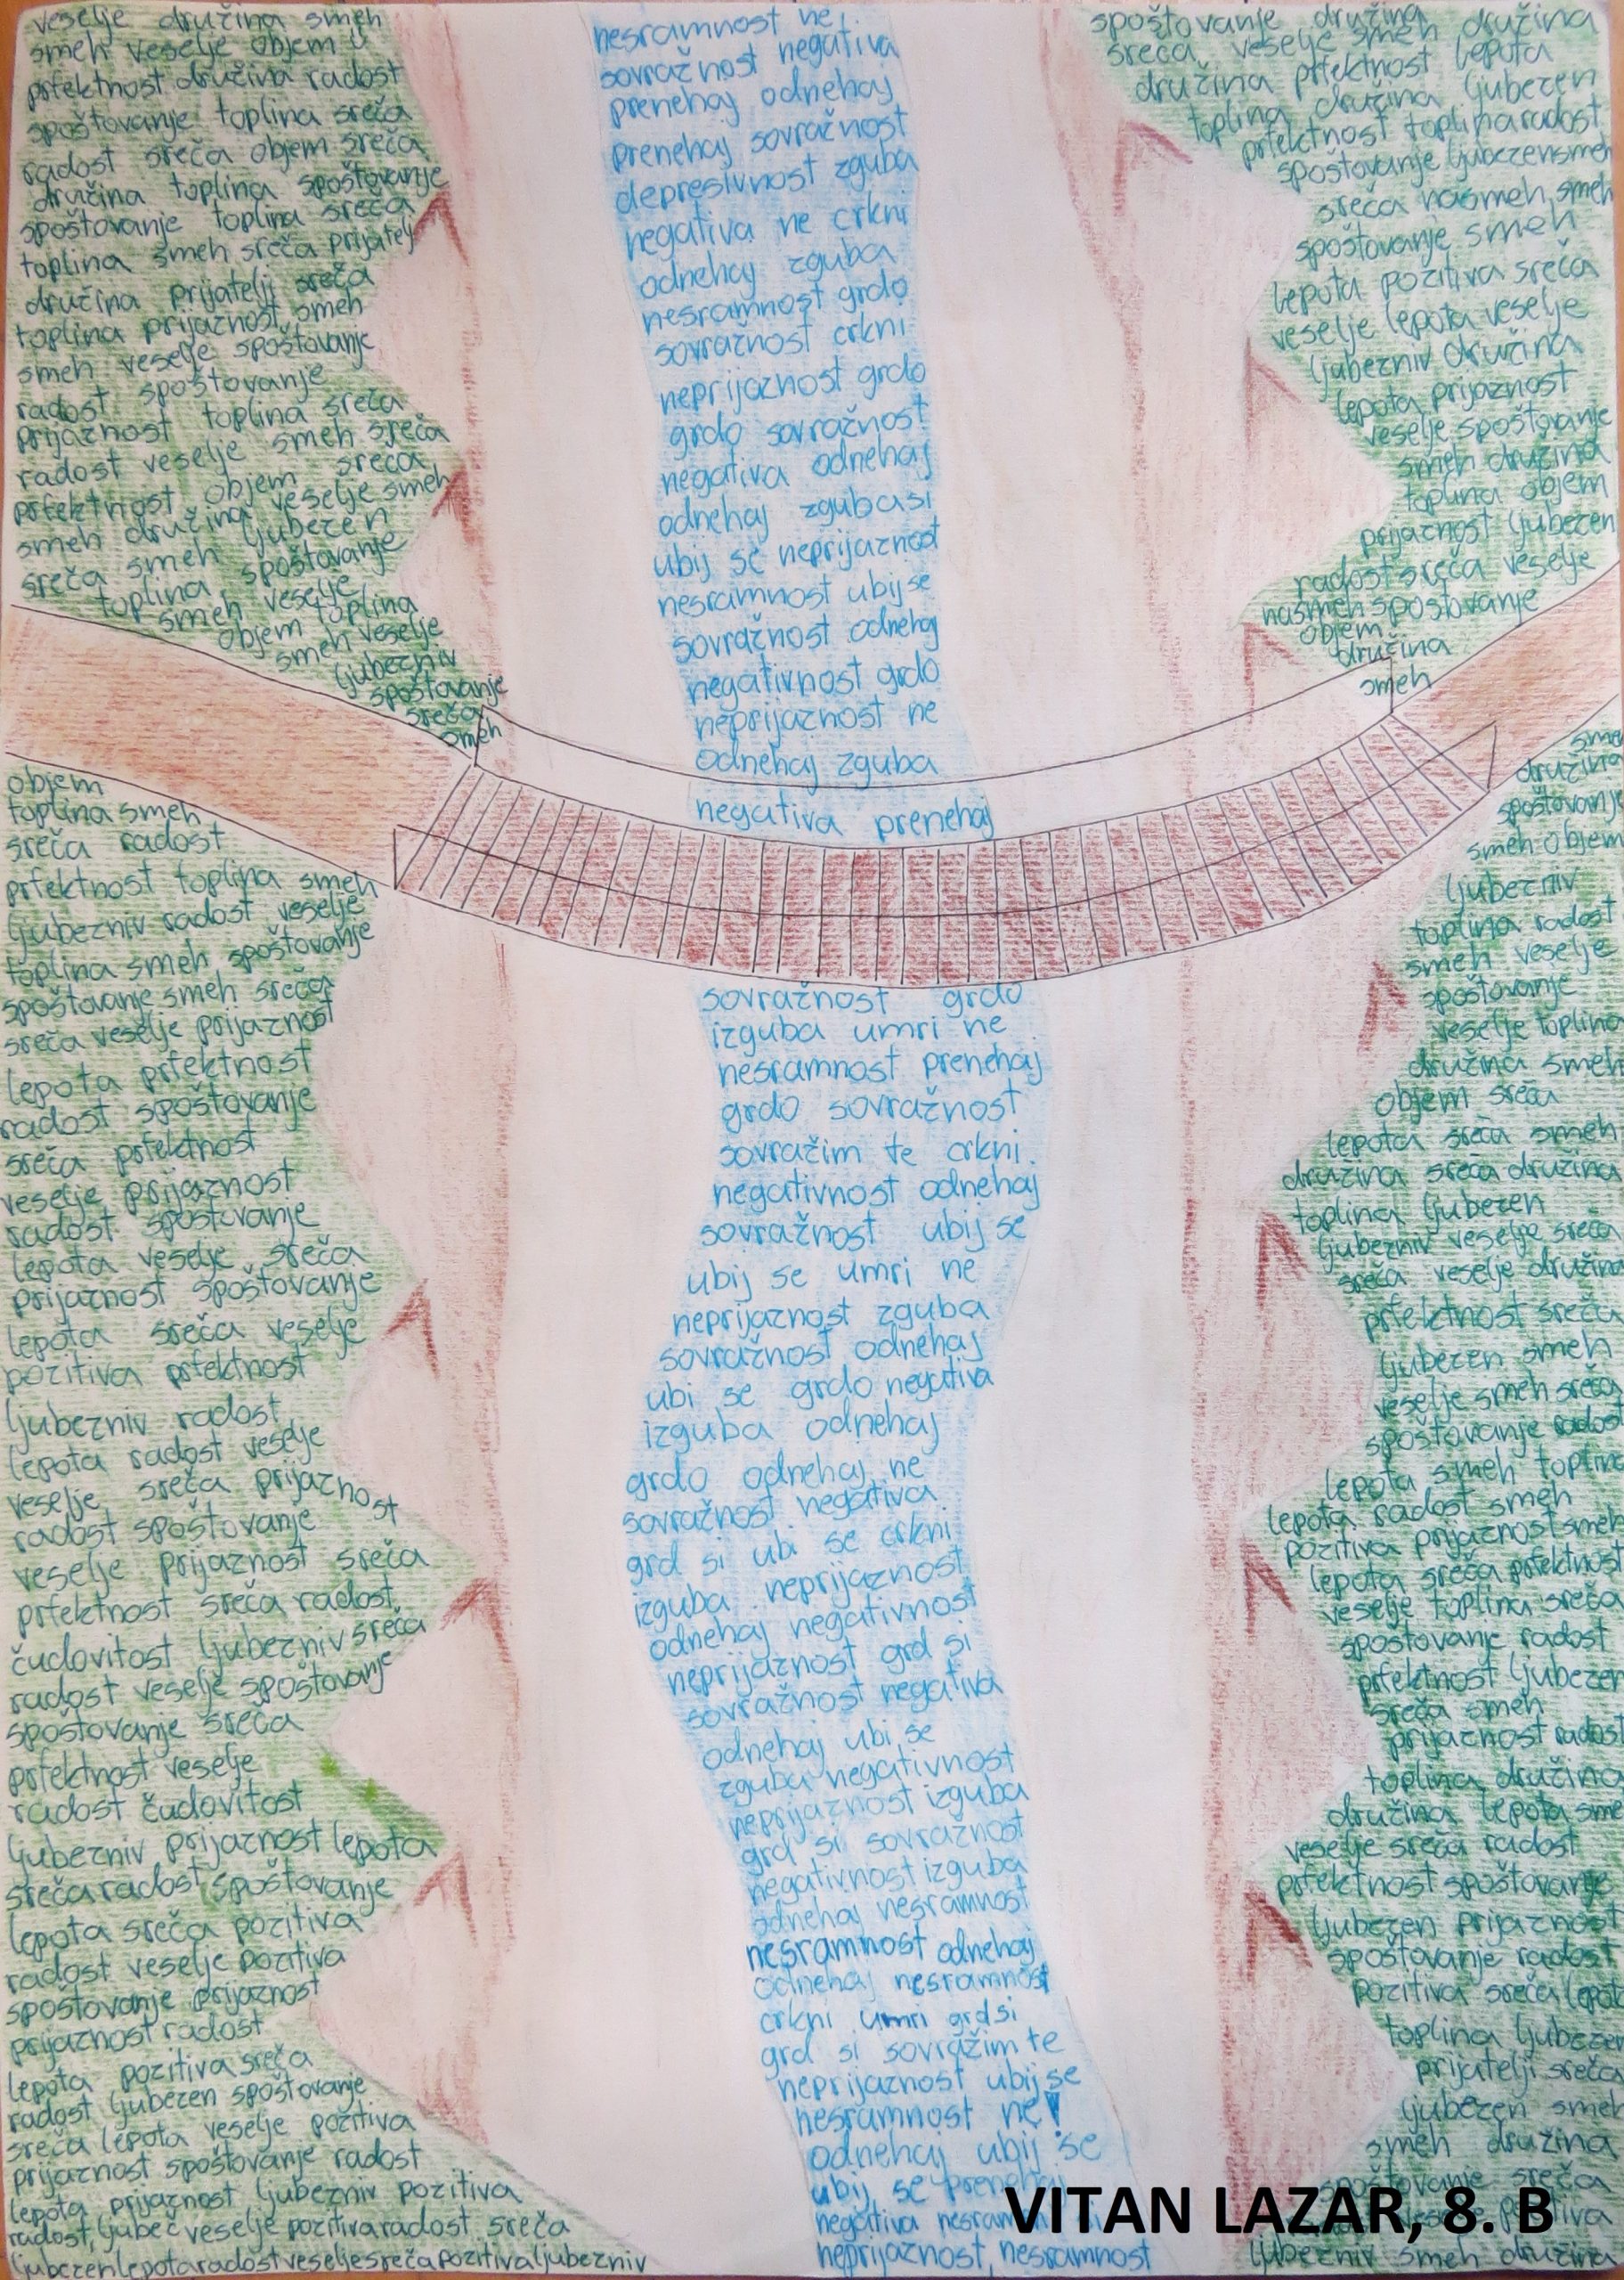 veselje družina smeh
smeh veselje objem
prfektnost družina radost
spoštovanje toplina sreča
radost sreča objem sreča
družina toplina spoštovanje
spoštovanje toplina sreča
toplina smeh sreča prijatelj
družina prijatelji sreča
toplina prijaznost smeh
smeh veselje spoštovanje
radost spoštovanje
prijaznost toplina sreča
radost veselje smeh sreča
prfektnost objem sreča
smeh družina veselje smeh
sreča smeh ljubezen
toplina spoštovanje
smeh veselje
objem toplina
smeh veselje
ljubezniv
spoštovanje
sreča
smeh
nesramnost ne
sovražnost negativa
prenehaj odnehaj
prenehaj sovražnost
depresivnost zguba
negativa ne crkni
odnehaj zguba
nesramnost grdo
sovražnost crkni
neprijaznost grdo
grdo sovražnost
negativa odnehaj
odnehaj zguba si
ubij se neprijaznost
nesramnost ubij se
sovražnost odnehaj
negativnost grdo
neprijaznost ne
odnehaj zguba
negativa prenehaj
spoštovanje družina
sreča veselje smeh družina
družina prfektnost lepota
toplina družina ljubezen
prfektnost toplina radost
spoštovanje ljubezen smeh
sreča nasmeh smeh
spoštovanje smeh
lepota pozitiva sreča
veselje lepota veselje
ljubezniv družina
lepota prijaznost
veselje spoštovanje
smeh družina
toplina objem
prijaznost ljubezen
radost sreča veselje
nasmeh spoštovanje
objem
družina
smeh
objem
toplina smeh
sreča radost
prfektnost toplina smeh
ljubezniv radost veselje
toplina smeh spoštovanje
spoštovanje smeh sreča
sreča veselje prijaznost
lepota prfektnost
radost spoštovanje
sreča prfektnost
veselje prijaznost
radost spoštovanje
lepota veselje sreča
prijaznost spoštovanje
lepota sreča veselje
pozitiva prfektnost
ljubezniv radost
lepota radost veselje
veselje sreča prijaznost
radost spoštovanje
veselje prijaznost sreča
prfektnost sreča radost
čudovitost ljubezniv sreča
radost veselje spoštovanje
spoštovanje sreča
prfektnost veselje
radost čudovitost
ljubezniv prijaznost lepota
sreča radost spoštovanje
lepota sreča pozitiva
radost veselje pozitiva
spoštovanje prijaznost
prijaznost radost
lepota pozitiva sreča
radost ljubezen spoštovanje
sreča lepota veselje pozitiva
prijaznost spoštovanje radost
lepota prijaznost ljubezniv pozitiva
radost, ljubeč veselje pozitiva radost sreča
ljubezen lepota radost veselje sreča pozitiva ljubezniv
sovražnost grdo
izguba umri ne
nesramnost prenehaj
grdo sovražnost
sovražim te crkni
negativnost odnehaj
sovražnost ubij se
ubij se umri ne
neprijaznost zguba
sovražnost odnehaj
ubi se grdo negativa
izguba odnehaj
grdo odnehaj ne
sovražnost negativa
grd si ubi se crkni
izguba neprijaznost
odnehaj negativnost
neprijaznost grd si
sovražnost negativa
odnehaj ubi se
zguba negativnost
neprijaznost izguba
grd si sovražnost
negativnost izguba
odnehaj nesramnost
nesramnost odnehaj
odnehaj nesramnost
crkni umri grd si
grd si sovražim te
neprijaznost ubij se
nesramnost ne!
odnehaj ubij se
ubij se prenehaj
negativa
neprijaznost, nesramnost
sme
družina
spoštovanje
smeh objem
ljubezniv
toplina radost
smeh veselje
spoštovanje
veselje toplina
družina smeh
objem sreča
lepota sreča smeh
družina sreča družina
toplina ljubezen
ljubezniv veselje sreča
sreča veselje družina
prfektnost sreča
ljubezen smeh
veselje smeh sreča
spoštovanje radost
lepota smeh toplina
lepota radost smeh
pozitiva prijaznost smeh
lepota sreča prfektnost
veselje toplina sreča
spoštovanje radost
prfektnost ljubezen
sreča smeh
prijaznost radost
toplina družina
družina lepota sme
veselje sreča radost
prfektnost spoštovanje
ljubezen prijaznost
spoštovanje radost
pozitiva sreča lepot
toplina ljubezen
prijatelji sreča
ljubezen smeh
smeh družina
spoštovanje sreča
ljubezniv smeh družina
VITAN LAZAR, 8. B